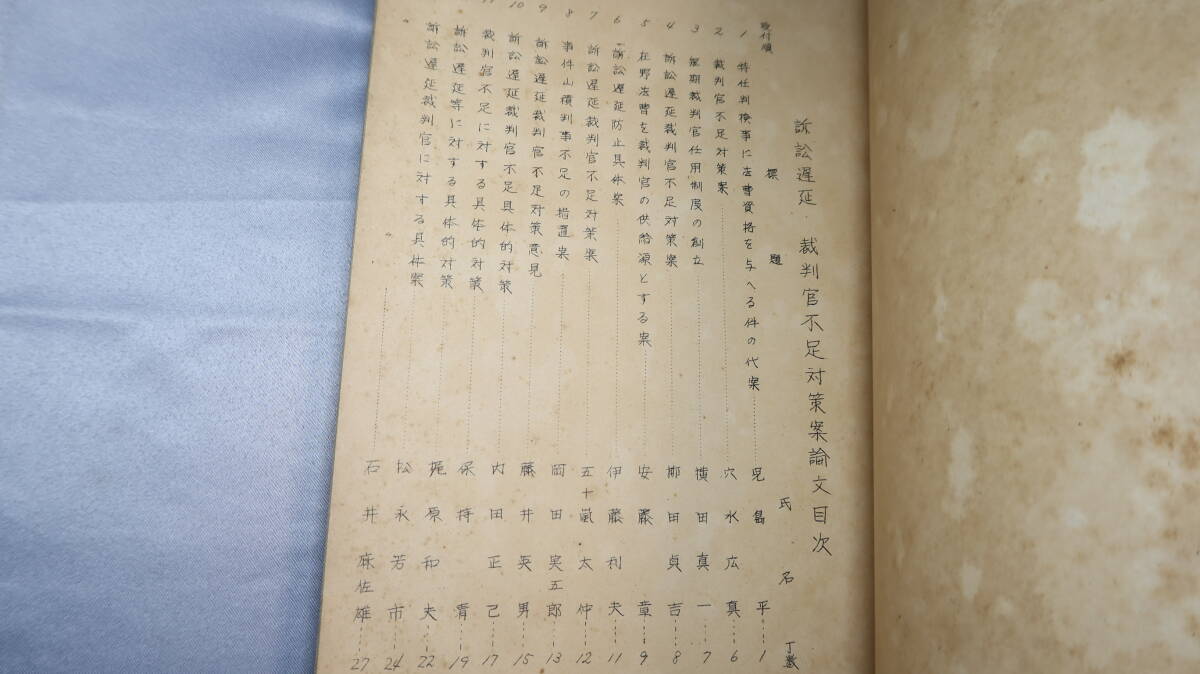 訴訟遅延 裁判官不足対策案論文目次
受付順 標題 氏名 丁数
1 特任判検事に法曹資格を与へる件の代案 児島平 1
2 裁判官不足対策案 穴水広真 6
3 短期裁判官任用制度の創立 横田真一 7
4 訴訟遅延裁判官不足対策案 柳田貞吉 8
5 在野法曹を裁判官の供給源とする案 安藤章 9
6 訴訟遅延防止具体案 伊藤利夫 11
7 訴訟遅延裁判官不足対策案 五十嵐太仲 12
8 事件山積判事不足の措置案 岡田実五郎 13
9 訴訟遅延裁判官不足対策意見 藤井英男 15
10 訴訟遅延裁判官不足具体的対策 内田正己 17
11 裁判官不足に対する具体的対策 保持 19
訴訟遅延等に対する具体的対策 梶原和夫 22
訴訟遅延裁判官に対する具体案 松永芳市 24
〃 〃 石井麻佐雄 27